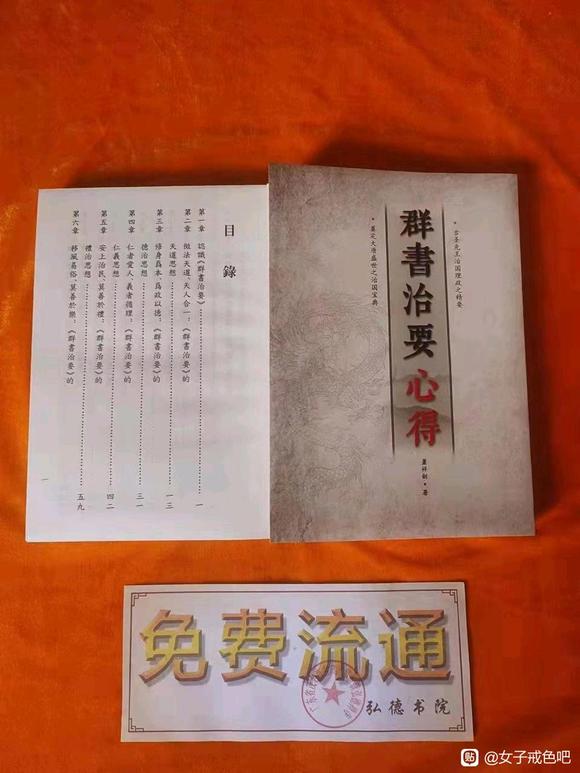 目錄
第一章 認識《群書治要》……………………一
第二章 效法天道、天人合一：《群書治要》的
天道思想……………………一三
第三章 修身爲本、爲政以德：《群書治要》的
德治思想……………………三一
第四章 仁者愛人、義者循理：《群書治要》的
仁義思想……………………四二
第五章 安上治民、莫善於禮：《群書治要》的
禮治思想……………………五九
第六章 移風易俗、莫善於樂：《群書治要》的
一
•古圣先王治国理政之精要
群書治要心得
•奠定大唐盛世之治国宝典
蕭祥劍•著
免费流通
弘德书院
贴 @女子戒色吧